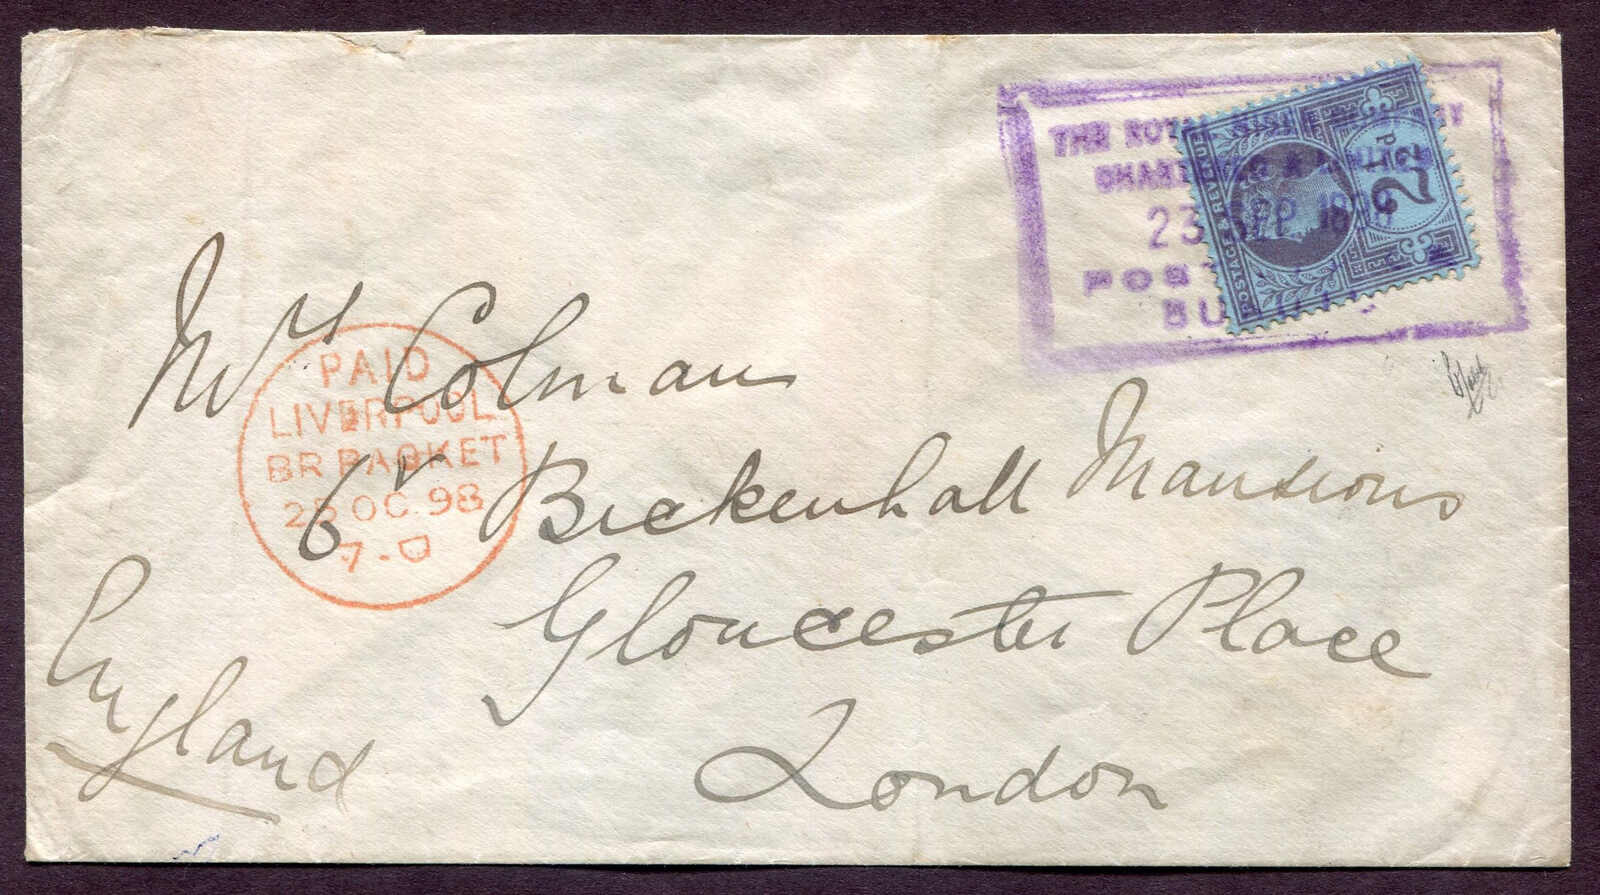 THE ROYAL NIGER COMPANY
CHARTERED & LIMITED
23 SEP 1898
POST
BURUTU.
POSTAGE & REVENUE
2½d
Mrs Colman
6r Bickenhall Mansions
Gloucester Place
London
England
PAID
LIVERPOOL
BR PACKET
25 OC 98
7-D